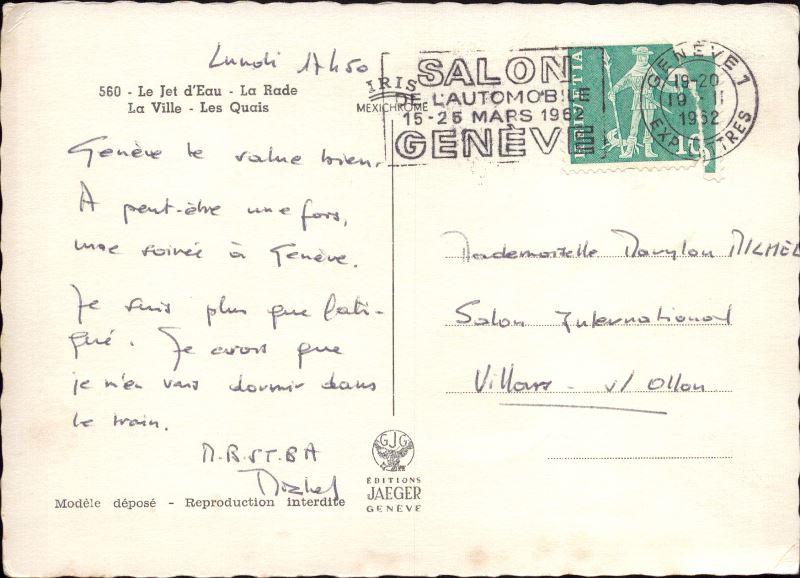 Lundi 17h50
560 - Le Jet d'Eau - La Rade
La Ville - Les Quais
IRIS
MEXICHROME
SALON
DE L'AUTOMOBILE
15-25 MARS 1962
GENÈVE
HELVETIA
10
GENÈVE 1
19-20
19 - II
1962
EXP. LETTRES
Genève te salue bien.
A peut-être une fois,
une soirée à Genève.
Je suis plus que fati-
gué. Je crois que
je m'en vais dormir dans
le train.
Mademoiselle
Salon International
Villars - s/ Ollon
GJG
ÉDITIONS
JAEGER
GENÈVE
Modèle déposé - Reproduction interdite